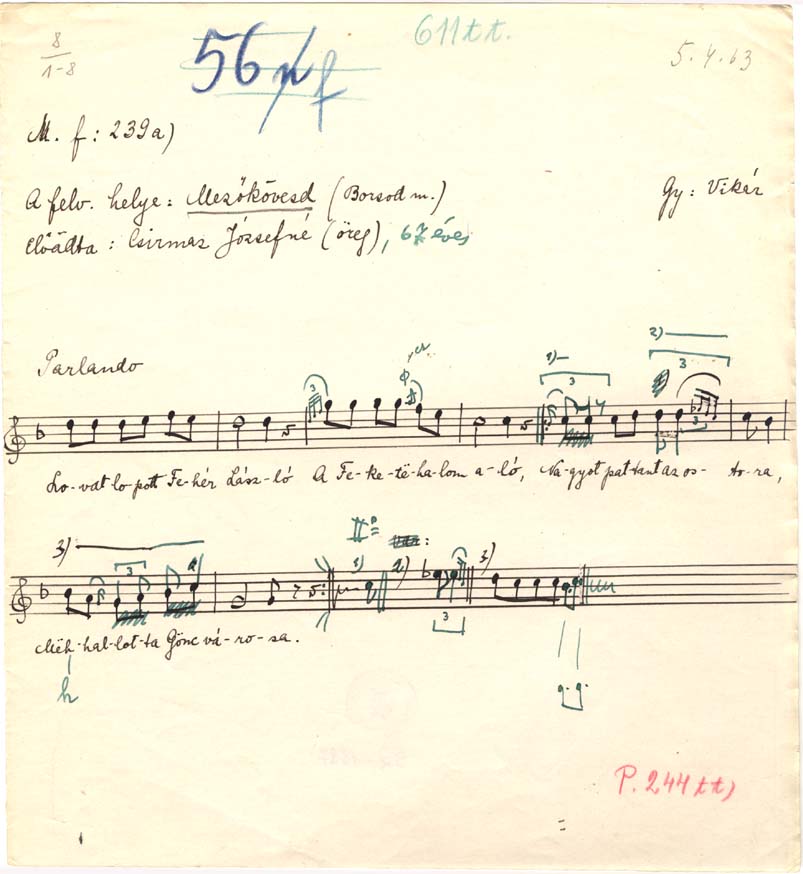 8
1-8
56
611 t t.
M. f: 239a)
A felv. helye: Mezőkövesd (Borsod m.)
Gy: Vikár
Előadta: Csirmaz Józsefné (öreg), 67 éves
Parlando
1) 2)
3
3
3
Lo-vat lo-pott Fe-hér Lász-ló A Fe-ke-të-ha-lom a-ló, Na-gyot pat-tant az os-to-ra,
3) 1) 2) 3)
3
3
Mëh-hal-lot-ta Gönc vá-ro-sa.
P. 244 t t)